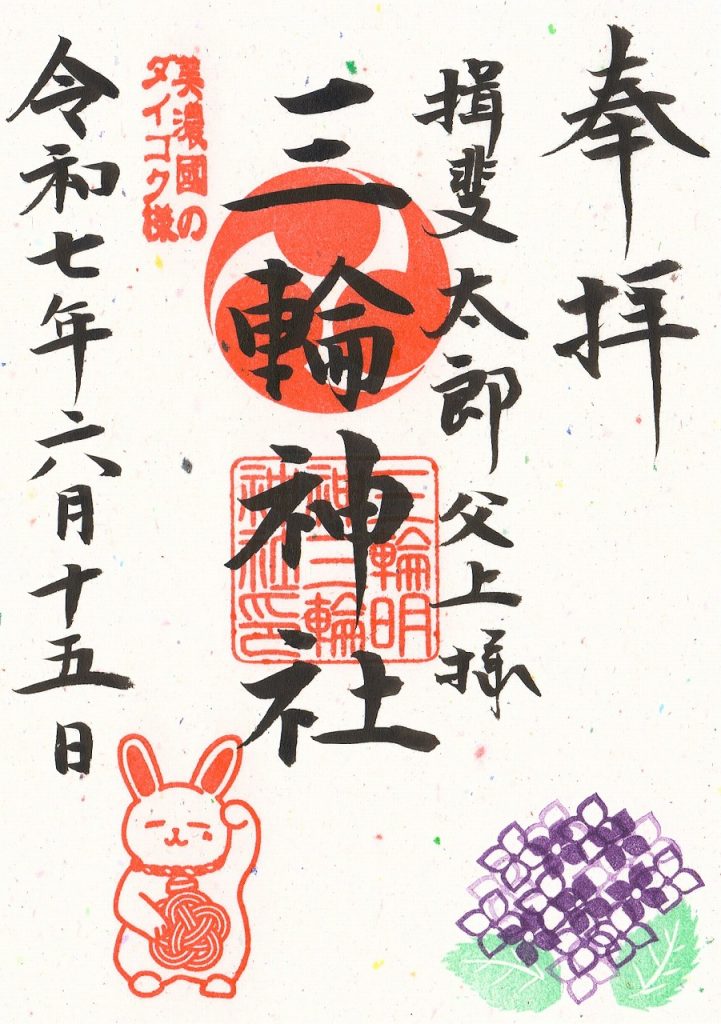 奉拝
揖斐太郎父上様
三輪神社
三輪明
神三輪
神社印
美濃國の
ダイコク様
令和七年六月十五日